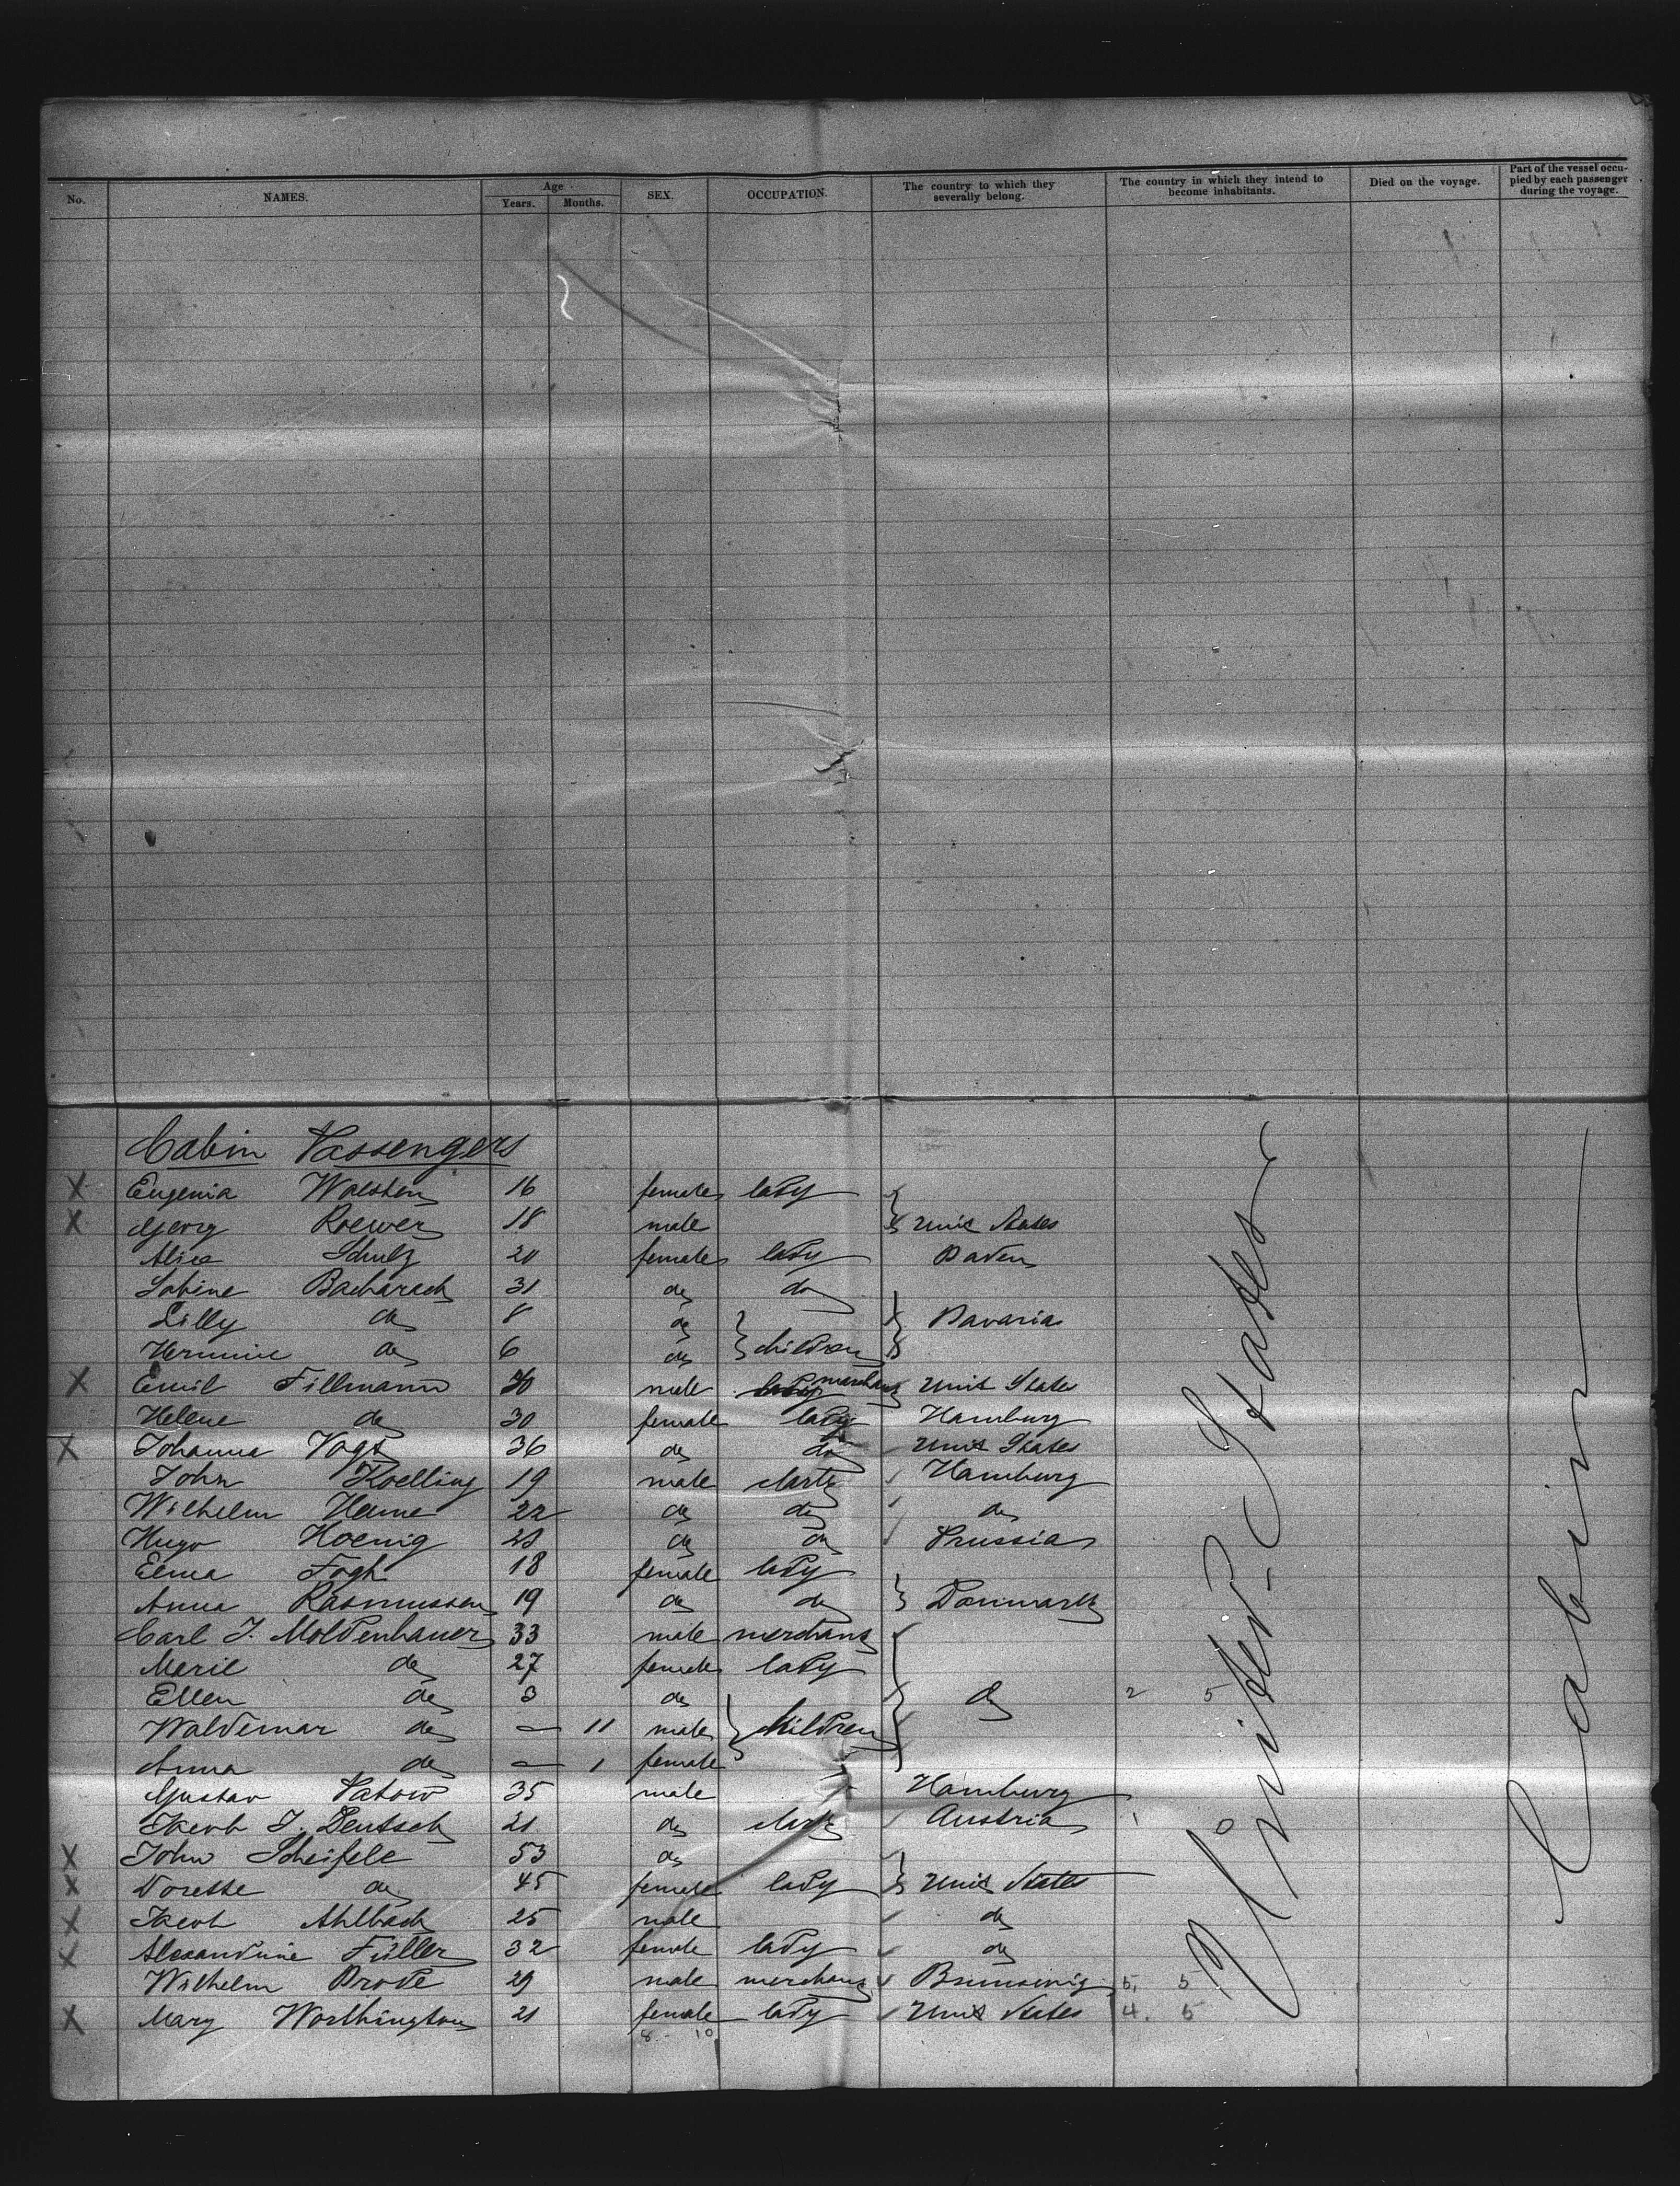 No. NAMES. Age Years. Months. SEX. OCCUPATION. The country to which they severally belong. The country in which they intend to become inhabitants. Died on the voyage. Part of the vessel occupied by each passenger during the voyage.
Cabin Passengers
X Eugenia 16 female lady
X Georg Roewer 18 male Unit States
Alice Schulz 20 female lady Baden
Sabine Bacharach 31 do do
Lilly do 8 do Bavaria
Hermine do 6 do children
X Emil Fillmann male merchant Unit States
Helene do 30 female lady Hamburg
X Johanna Vogt 36 do do Unit States
John Koelling 19 male clerk Hamburg
Wilhelm Heine 22 do do do
Hugo Hoenig do do Prussia
Elma Fogh 18 female lady
Anna Rasmussen 19 do do Danmark
Carl J. Moldenhauer 33 male merchant
Marie do 27 female lady
Ellen do 3 do do 2 5
Waldemar do — 11 male children
Anna do — 1 female
Gustav Patow 35 male Hamburg
Jacob J. Deutsch 21 do clerk Austria 1 0
X John Scheifele 53 do
X Dorette do 45 female lady Unit States
X Jacob Ahlbach 25 male do
X Alexandrine Füller 32 female lady do
Wilhelm Brode 29 male merchant Brunswig 5, 5
X Mary Worthington 21 female lady Unit States 4. 5
8 - 10
United States
Cabin